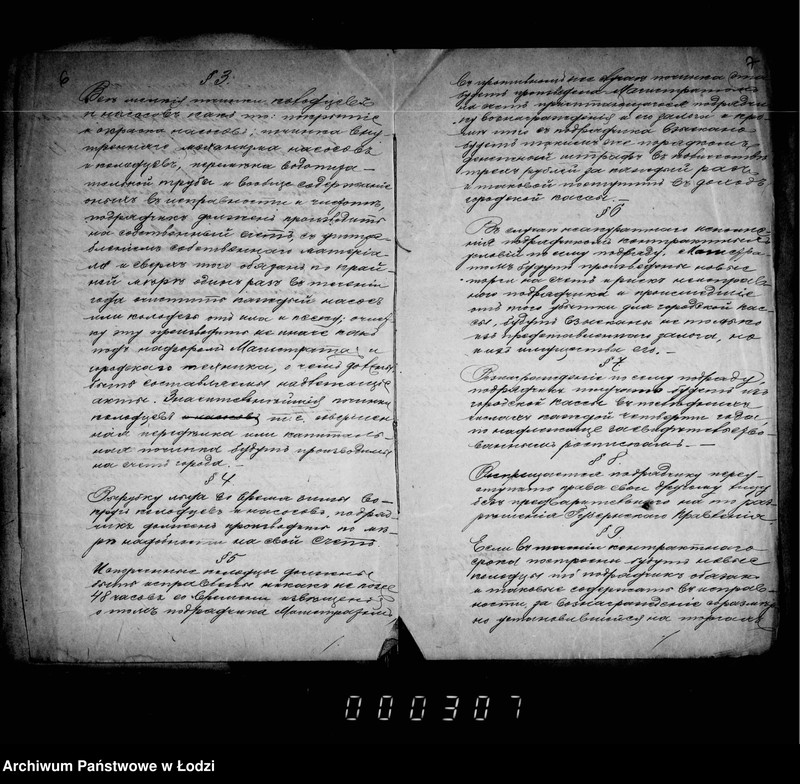 6
§ 3.
Все мелкія починки колодцевъ
и насосовъ какъ то: покрытіе
и окраска насосовъ; починка внут
тренняго механизма насосовъ
и колодцевъ, перемѣна водопрово-
тельной трубы и вообще содержаніе
оныхъ въ исправности и чистотѣ,
подрядчикъ долженъ производить
на собственный счетъ, съ употре-
бленіемъ собственнаго матеріа-
ла и сверхъ того обязанъ по край-
ней мѣрѣ одинъ разъ въ теченіи
года очистить каждый насосъ
или колодезь отъ ила и песку; очист
ку эту производить не иначе какъ
подъ надзоромъ Магистрата и
городскаго техника, о чемъ должны
быть составляемы надлежащіе
акты. Значительнѣйшія починки
колодцевъ т. е. совершен-
ная передѣлка или капиталь-
ная починка будутъ производимы
на счетъ города. -
§ 4
Вырубку льда во время зимы во-
кругъ колодцевъ и насосовъ, подряд-
чикъ долженъ производить по мѣ-
рѣ надобности на свой счетъ
§ 5
Испорченные колодцы должны
быть исправлены никакъ не позже
48 часовъ со времени извѣщенія
о томъ подрядчика Магистратомъ
7
въ противномъ же случаѣ починка эта
будетъ произведена Магистратомъ
на счетъ причитающагося подрядчи
ку вознагражденія и его залога и кро-
мѣ того съ подрядчика взыскано
будетъ такимъ же порядкомъ
денежный штрафъ въ количествѣ
трехъ рублей за каждый разъ
и таковой поступитъ въ доходъ
городской кассы. -
§ 6
Въ случаѣ неаккуратнаго исполне-
нія подрядчикомъ контрактныхъ
условій по сему подряду, Магистра
томъ будутъ произведены новые
торги на счетъ и рискъ неисправ-
наго подрядчика и происшедшіе
отъ того убытки для городской кас-
сы, будутъ взысканы не только
изъ представленнаго залога, но
и изъ имущества его. -
§ 7
Вознагражденіе по сему подряду,
подрядчикъ получать будетъ изъ
городской кассы въ
каждой четверти года,
по надлежаще засвидѣтельство-
ваннымъ роспискамъ. -
§ 8.
Воспрещается подрядчику перед-
ступать права свои другому лицу
безъ предварительнаго на то раз-
рѣшенія Губернскаго Правленія.
§ 9
Если въ контрактнаго
срока построены будутъ новые
колодцы то подрядчикъ обязанъ
и таковые содержать въ исправ-
ности, за вознагражденіе сразмѣр
но установившейся на торгахъ
000307
Archiwum Państwowe w Łodzi